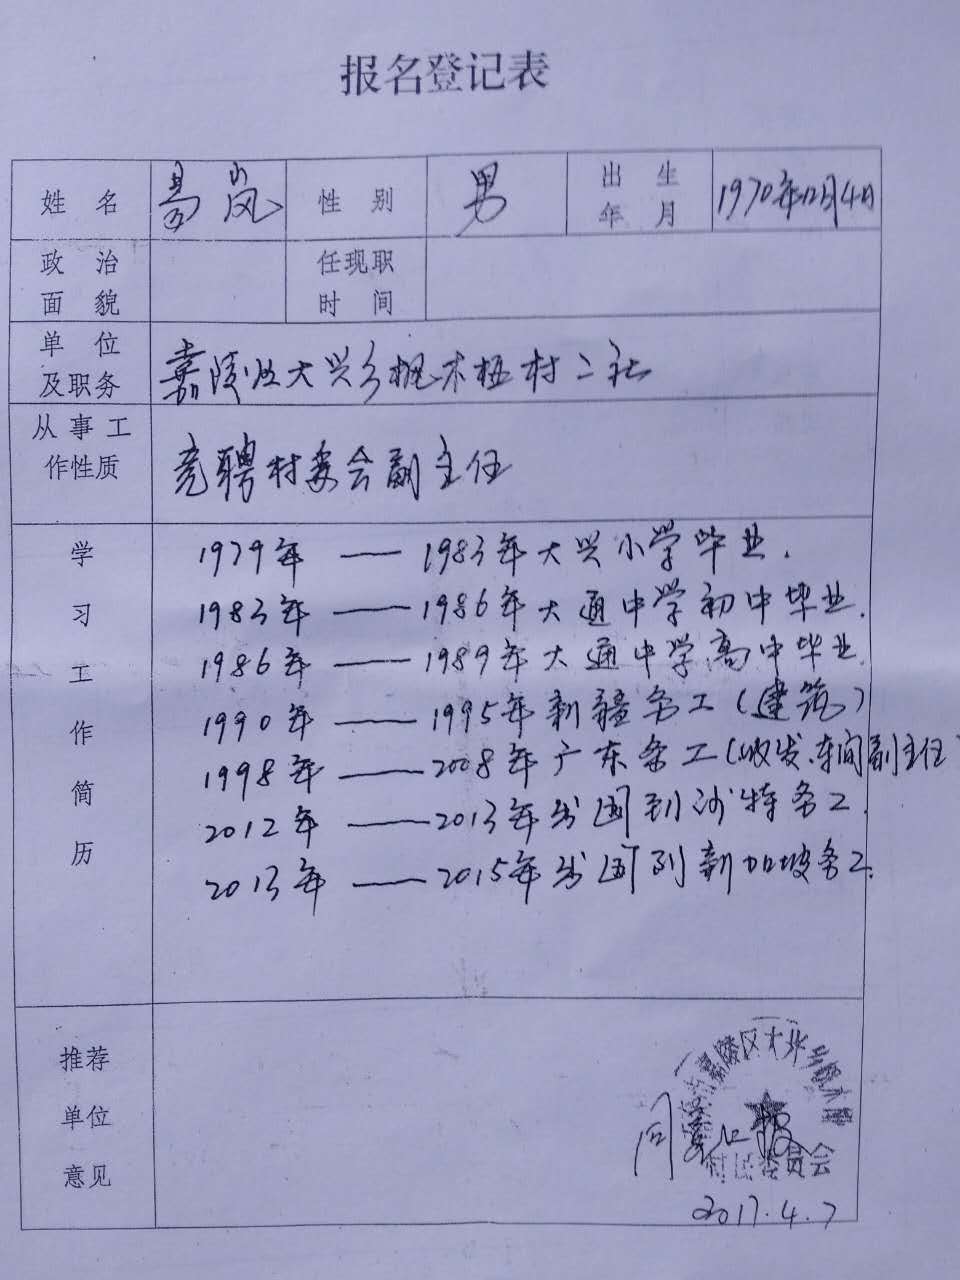 报名登记表
姓 名 易岚 性 别 男 出 生 年 月 1970年12月4日
政 治 面 貌 任现职 时 间
单 位 及职务 嘉陵区大兴乡枫木垭村二社
从事工 作性质 竞聘村委会副主任
学习工作简历
1979年 —— 1983年大兴小学毕业.
1983年 —— 1986年大通中学初中毕业.
1986年 —— 1989年大通中学高中毕业.
1990年 —— 1995年新疆务工(建筑)
1998年 —— 2008年广东务工(收发.车间副主任
2012年 —— 2013年出国到沙特务工.
2013年 —— 2015年出国到新加坡务工.
推荐 单位 意见
陵区大兴
村民委员会
2017.4.7